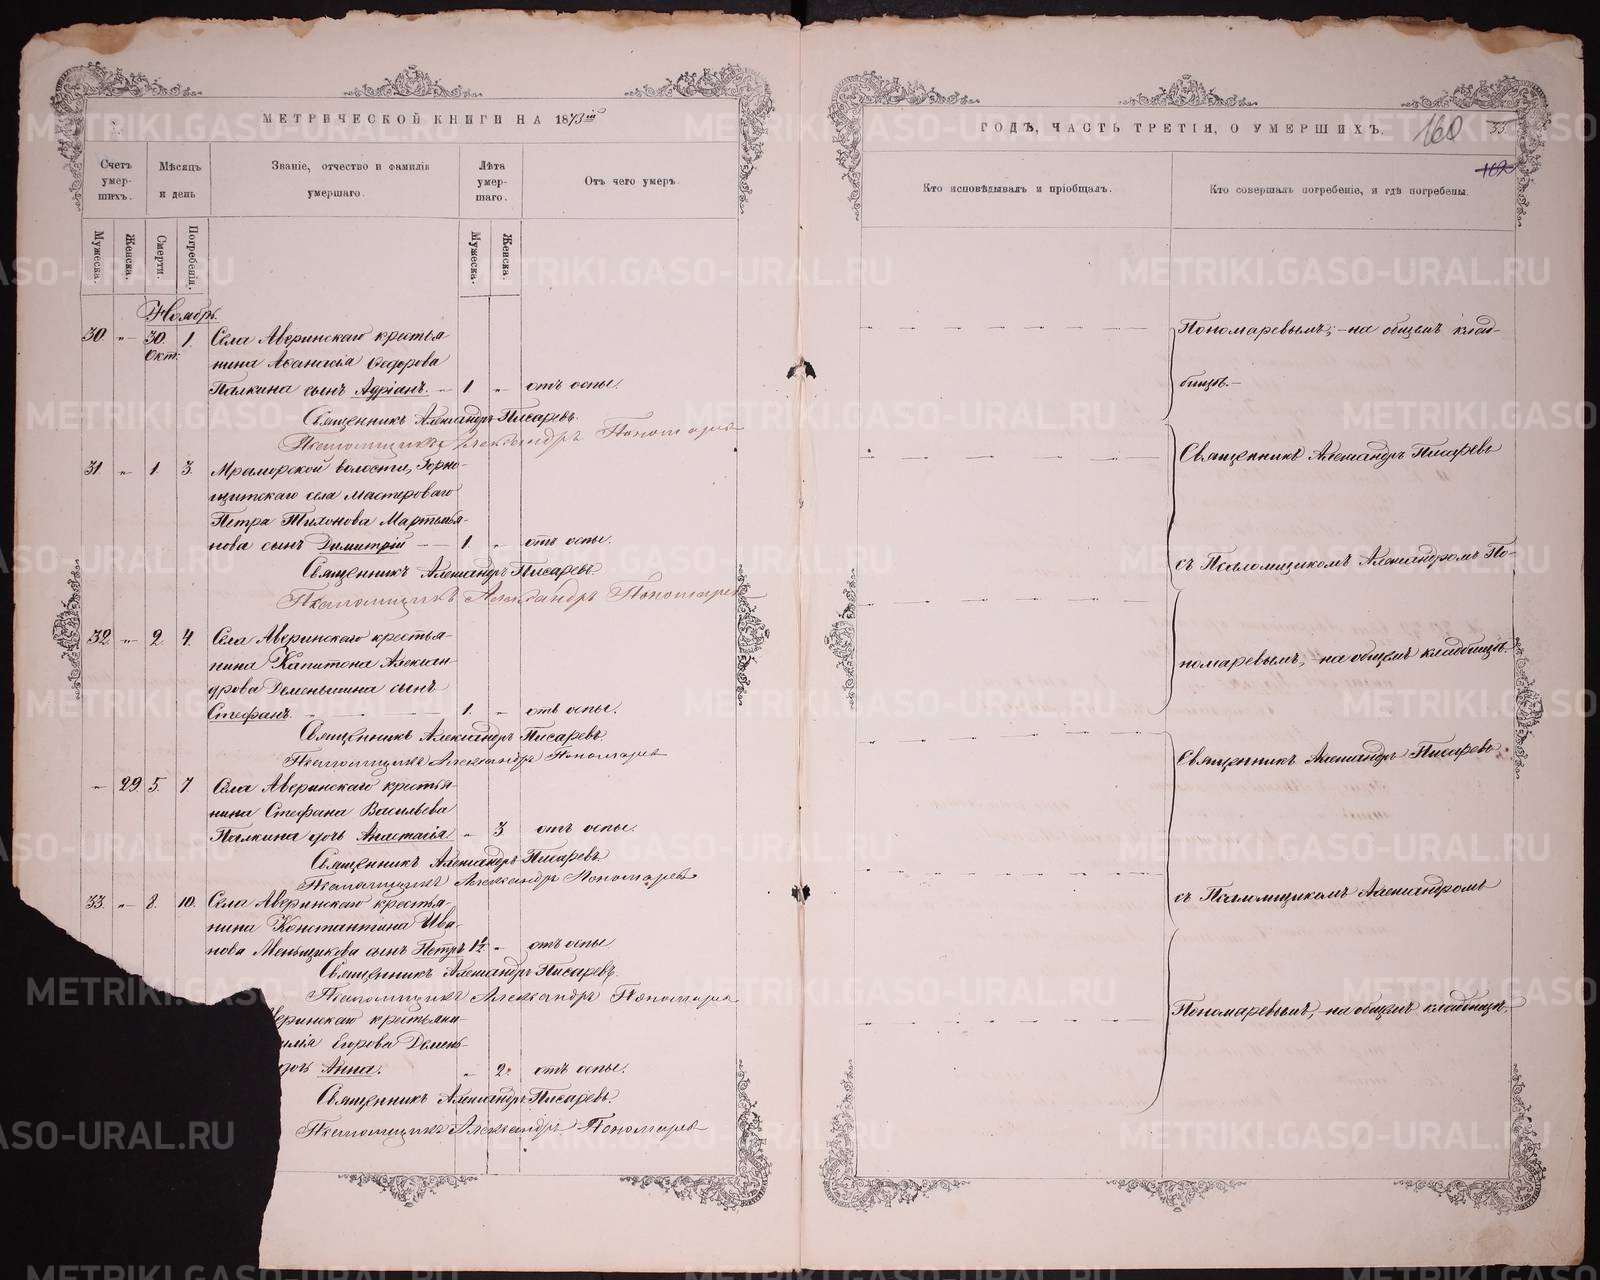 МЕТРИЧЕСКОЙ КНИГИ НА 1873й
Счетъ умер-шихъ.
Мѣсяцъ и день
Званіе, отчество и фамилія умершаго.
Лѣта умер-шаго.
Отъ чего умеръ.
Мужеска.
Женска.
Смерти.
Погребенія.
Мужеска.
Женска.
Ноябрь.
30. „ 30. 1. Села Аверинскаго крестья-
Окт. нина Аѳанасія Ѳедорова
Палкина сынъ Адріанъ. 1 „ отъ оспы.
Священникъ Александръ Писаревъ.
Псаломщикъ Александръ Пономаревъ
31. „ 1. 3. Мраморской волости, Горно-
щитскаго села мастероваго
Петра Тихонова Мартемья-
нова сынъ Димитрій — 1. „ отъ оспы.
Священникъ Александръ Писаревъ.
Псаломщикъ Александръ Пономаревъ
32. „ 2. 4. Села Аверинскаго крестья-
нина Капитона Алексан-
дрова Деменьшина сынъ
Стефанъ. 1. „ отъ оспы.
Священникъ Александръ Писаревъ.
Псаломщикъ Александръ Пономаревъ
„ 29. 5. 7 Села Аверинскаго крестья-
нина Стефана Васильева
Палкина дочь Анастасія „ 3 отъ оспы.
Священникъ Александръ Писаревъ.
Псаломщикъ Александръ Пономаревъ
33. „ 8. 10. Села Аверинскаго крестья-
нина Константина Ива-
нова Меньщикова сынъ Петръ 1½ „ отъ оспы
Священникъ Александръ Писаревъ.
Псаломщикъ Александръ Пономаревъ
веринскаго крестьяни-
Егорова Демень-
дочь Анна. „ 2. отъ оспы.
Священникъ Александръ Писаревъ.
Псаломщикъ Александръ Пономаревъ
ГОДЪ, ЧАСТЬ ТРЕТІЯ, О УМЕРШИХЪ.
160
35.
Кто исповѣдывалъ и пріобщалъ.
Кто совершалъ погребеніе, и гдѣ погребены.
Пономаревымъ, — на общемъ клад-
бищѣ. —
Священникъ Александръ Писаревъ
съ Псаломщикомъ Александромъ По-
номаревымъ, — на общемъ кладбищѣ.
Священникъ Александръ Писаревъ
съ Псаломщикомъ Александромъ
Пономаревымъ, — на общемъ кладбищѣ.
METRIKI.GASO-URAL.RU